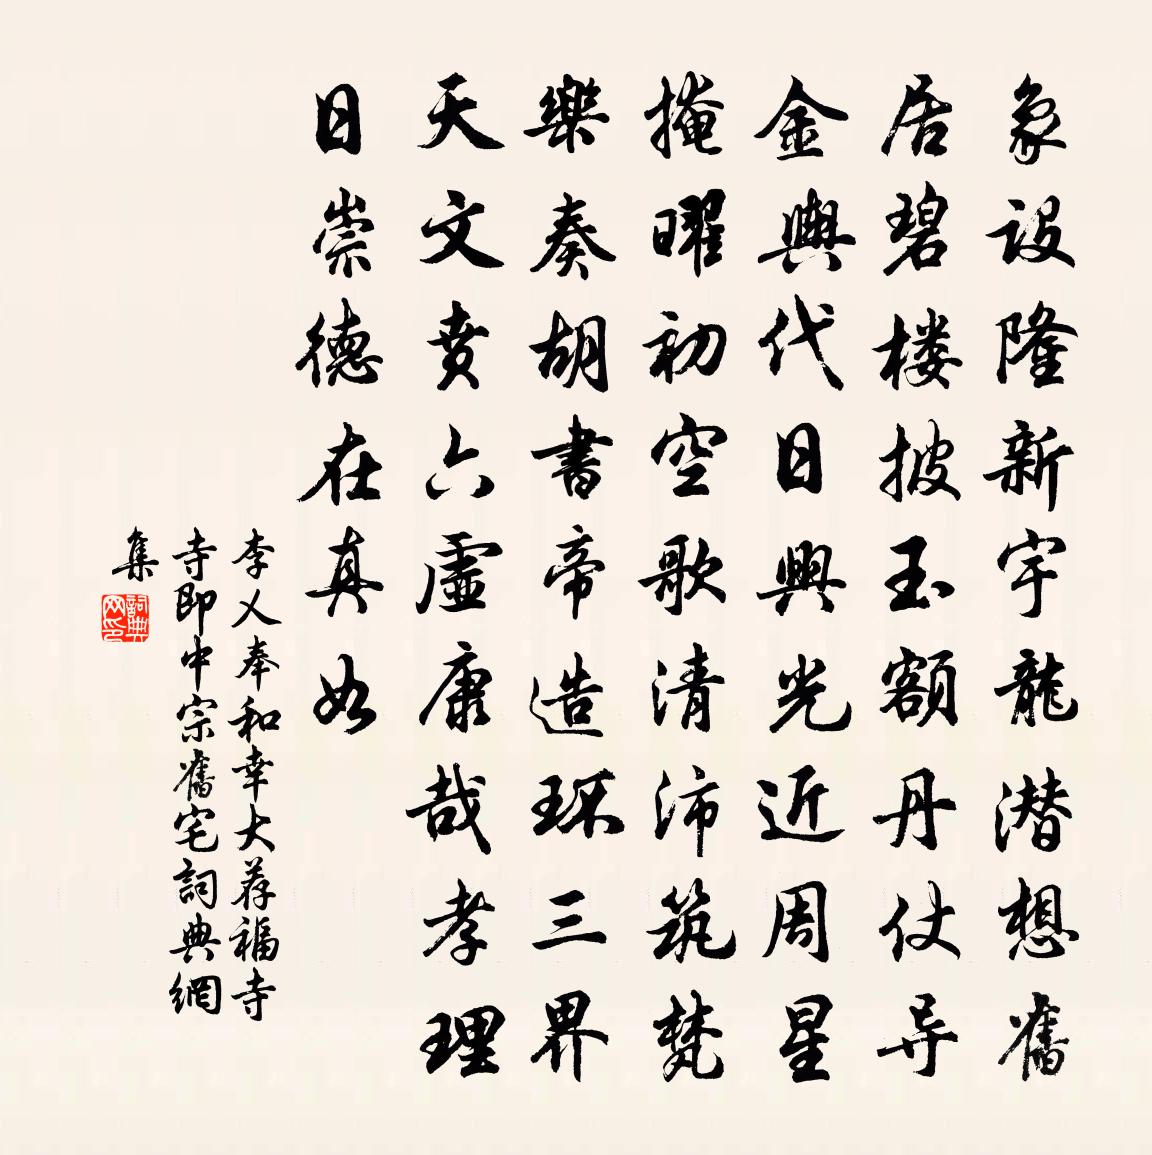 象設隆新宇龍潜想舊
居碧楼披玉額丹仗导
金輿代日輿光近周星
掩曜初空歌清沛筑梵
樂奏胡書帝造環三界
天文賁六虛康哉孝理
日崇德在真如
李乂奉和幸大荐福寺
寺即中宗舊宅詞典網
集
詞典網印